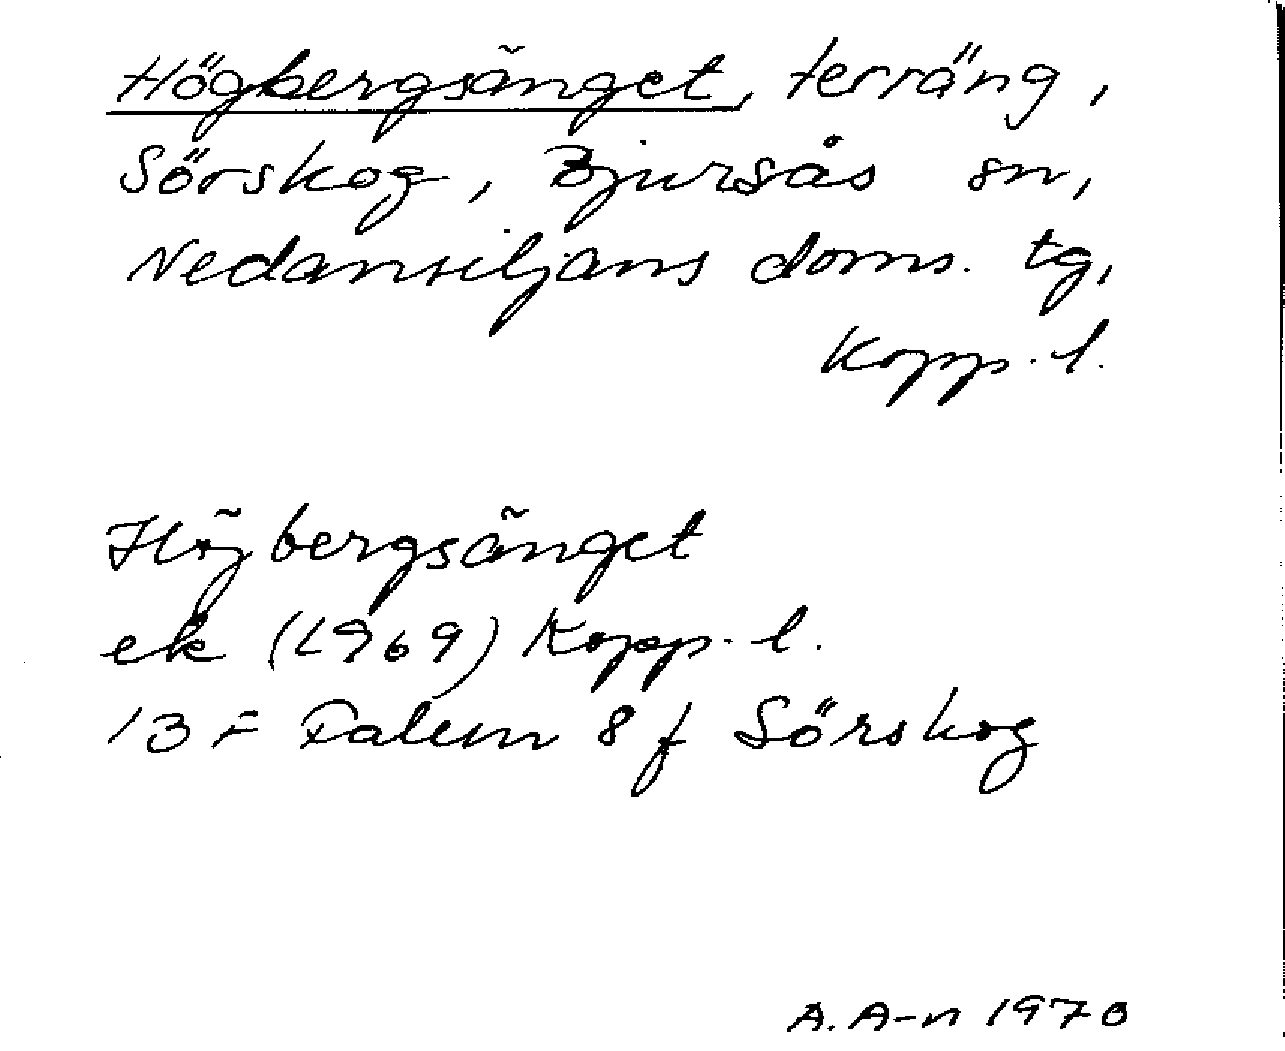 Högbergsänget, terräng,
Sörskog, Bjursås sn,
Nedansiljans doms. tg,
Kopp. l.
Högbergsänget
ek (1969) Kopp. l.
13 F Falun 8 f Sörskog
A. A-n 1970